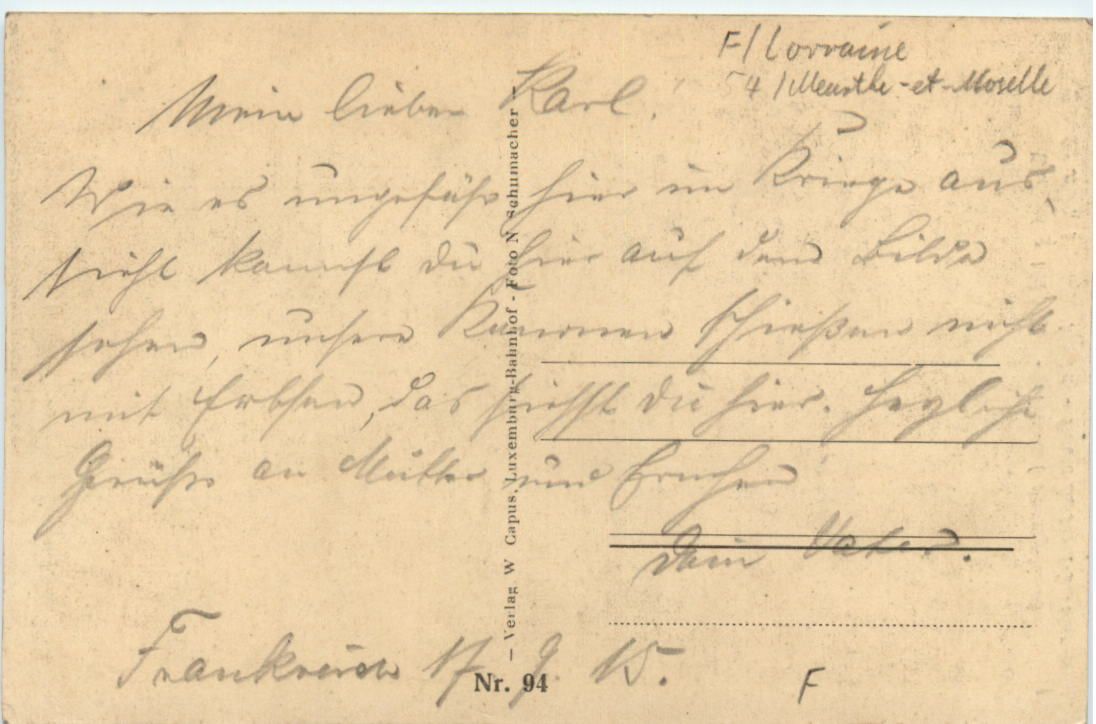 F/Lorraine
54/Meurthe-et-Moselle
Mein lieber Karl!
Wie es ungefähr hier im Kriege aus
sieht kannst du hier auf dem Bilde
sehen, unsere Kanonen schießen nicht
mit Erbsen, das siehst du hier. Herzliche
Grüße an Mutter und
Dein Vater.
Frankreich 17.9.15.
– Verlag W Capus, Luxemburg-Bahnhof - Foto N Schumacher –
Nr. 94
F